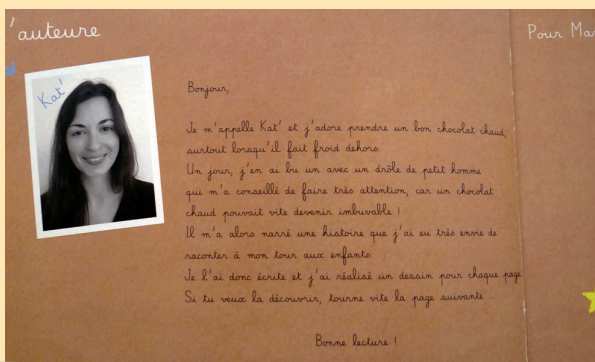 'auteure
Pour Ma
Kat'
Bonjour,
Je m'appelle Kat' et j'adore prendre un bon chocolat chaud,
surtout lorsqu'il fait froid dehors.
Un jour, j'en ai bu un avec un drôle de petit homme
qui m'a conseillé de faire très attention, car un chocolat
chaud pouvait vite devenir imbuvable !
Il m'a alors narré une histoire que j'ai eu très envie de
raconter à mon tour aux enfants.
Je l'ai donc écrite et j'ai réalisé un dessin pour chaque page.
Si tu veux la découvrir, tourne vite la page suivante ...
Bonne lecture !